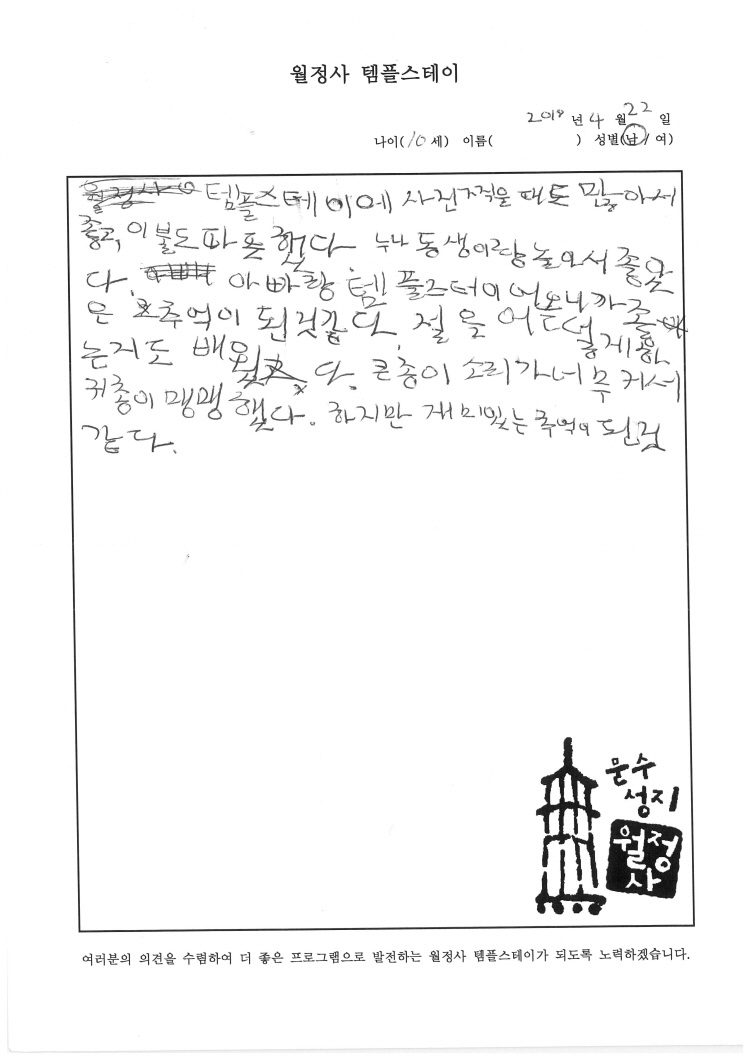 월정사 템플스테이
2018 년 4 월 22 일
나이(10 세) 이름( ) 성별(남/여)
템플스테이에 사진찍을 때도 많아서
좋고, 이불도 파폿했다 누나 동생이랑 놀아서 좋았
다. 아빠랑 템플스터이 어오니까 좋
은 추억이 된것같다. 절을 어드덯게하
는지도 배웠다. 큰종이 소리가너무 커서
귀종이 맹맹했다. 하지만 재미있는 추억이 된것
같다.
문수
성지
월정
사
여러분의 의견을 수렴하여 더 좋은 프로그램으로 발전하는 월정사 템플스테이가 되도록 노력하겠습니다.